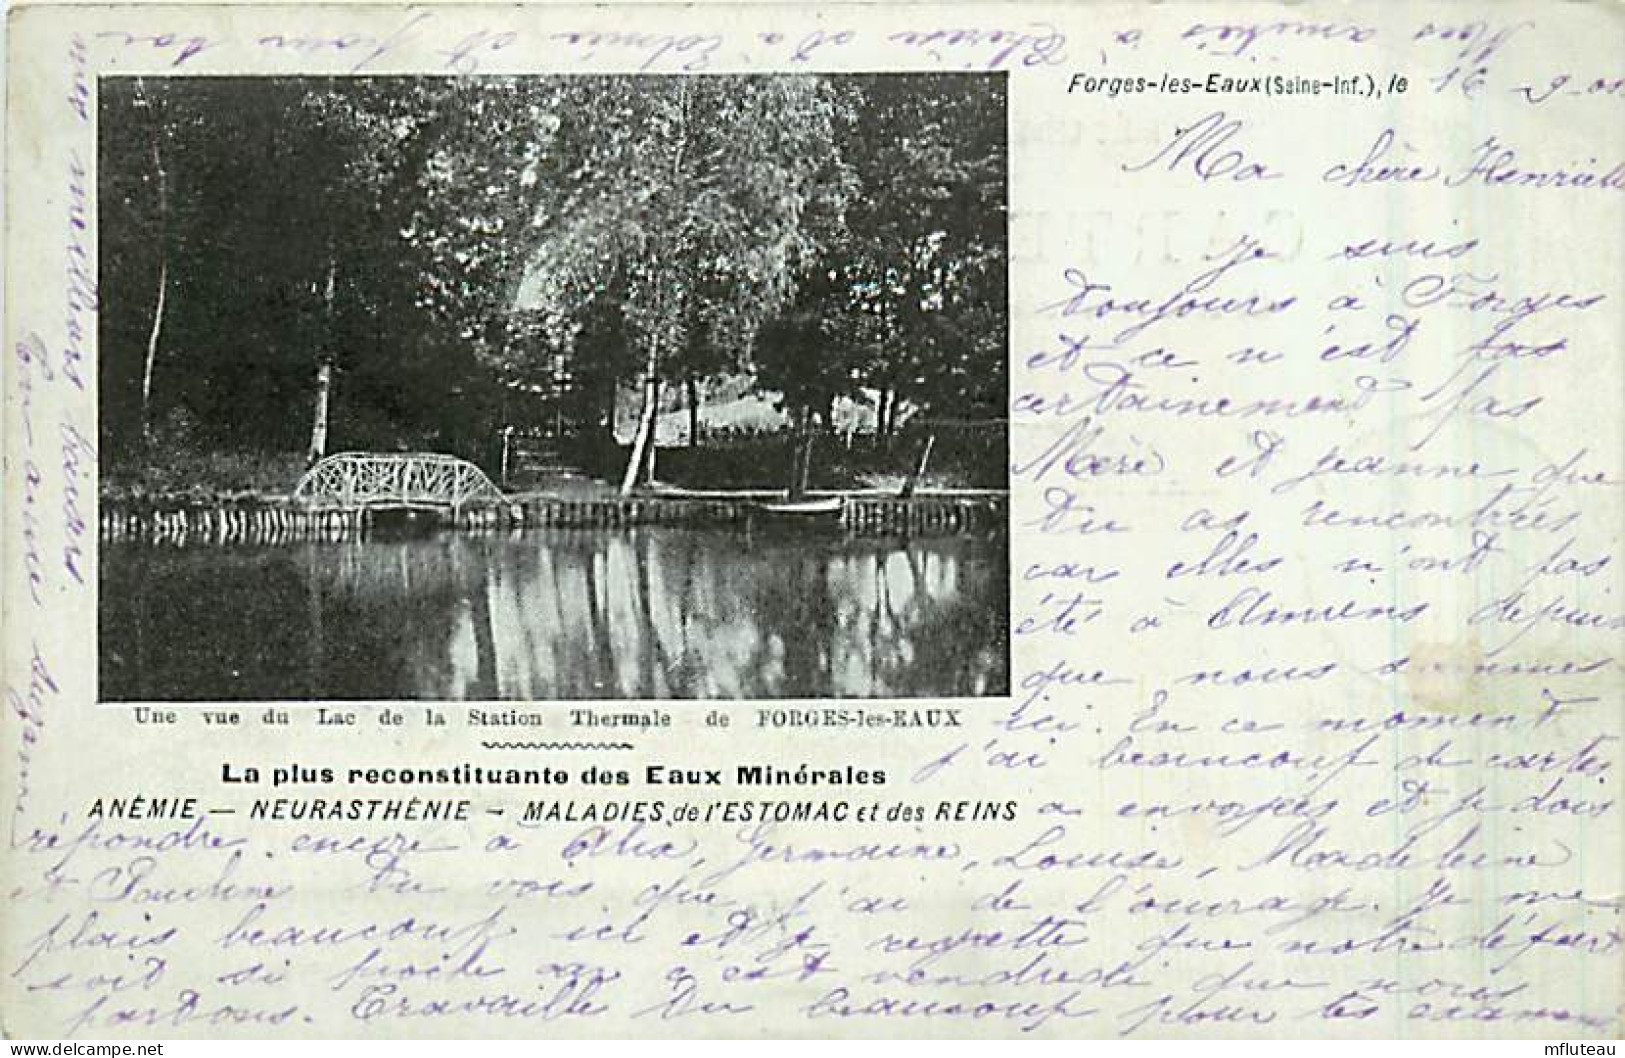 Forges-les-Eaux (Seine-Inf.), le 16 - 9 - 02
Ma chère Henriette
Je suis
toujours à Forges
et ce n'est pas
certainement pas
Mère et jeanne que
tu as rencontrées
car elles n'ont pas
été à Amiens depuis
que nous sommes
ici. En ce moment
j'ai beaucoup de cartes
a envoyées et je dois
répondre encore a Alix, Germaine, Louise, Madeleine
et Pauline tu vois que j'ai de l'ouvrage. Je me
plais beaucoup ici et je regrette que notre départ
soit si proche car c'est vendredi que nous
partons. Travaille tu beaucoup pour tes examens
Mes amitiés à Thérèse et à et pour toi
mes meilleurs baisers.
Ton amie Suzanne
Une vue du Lac de la Station Thermale de FORGES-les-EAUX
La plus reconstituante des Eaux Minérales
ANÉMIE — NEURASTHÉNIE - MALADIES de l'ESTOMAC et des REINS
mfluteau